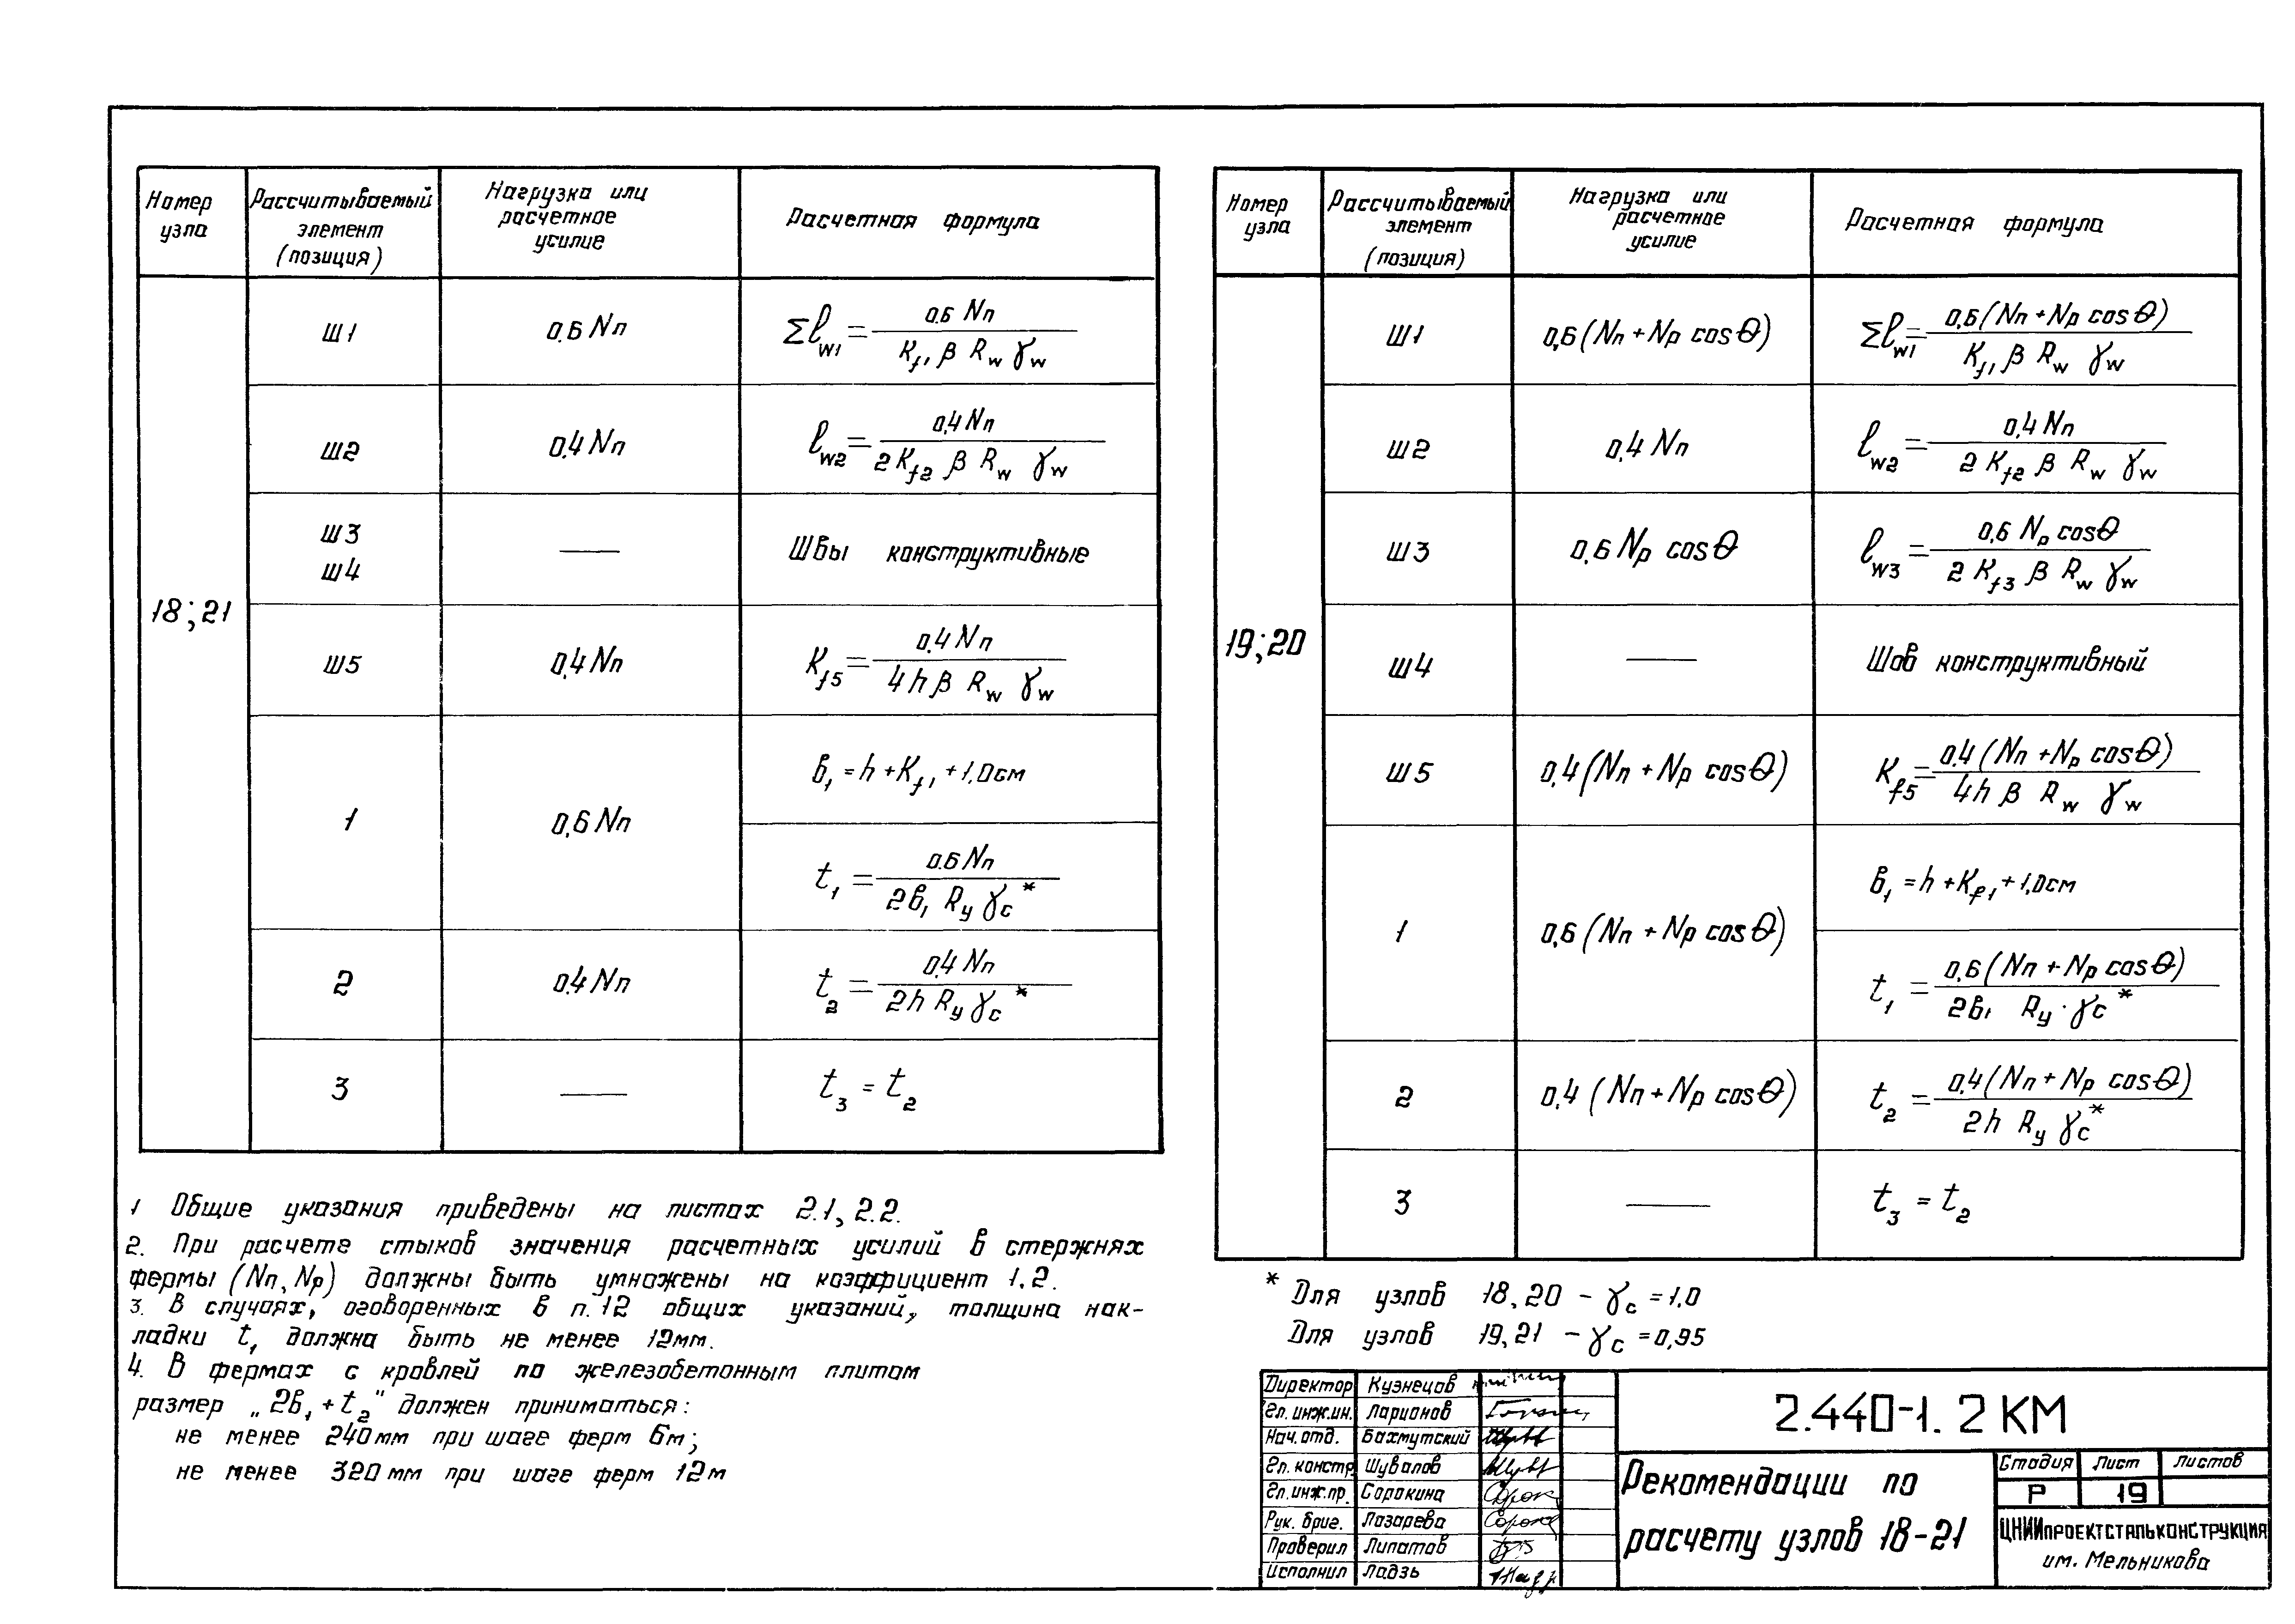 Номер узла
Рассчитываемый элемент (позиция)
Нагрузка или расчетное усилие
Расчетная формула
18; 21
Ш1
0.6 Nп
Σℓw1 = 0.6 Nп / Kf1 β Rw γw
Ш2
0,4 Nп
ℓw2 = 0,4 Nп / 2 Kf2 β Rw γw
Ш3
Ш4
—
Швы конструктивные
Ш5
0,4 Nп
Kf5 = 0,4 Nп / 4h β Rw γw
1
0,6 Nп
в1 = h + Kf1 + 1,0см
t1 = 0.6 Nп / 2в1 Ry γc*
2
0.4 Nп
t2 = 0,4 Nп / 2h Ry γc*
3
—
t3 = t2
Номер узла
Рассчитываемый элемент (позиция)
Нагрузка или расчетное усилие
Расчетная формула
19; 20
Ш1
0,6 (Nп + Nр cos θ)
Σℓw1 = 0,6 (Nп + Nр cos θ) / Kf1 β Rw γw
Ш2
0,4 Nп
ℓw2 = 0,4 Nп / 2 Kf2 β Rw γw
Ш3
0,6 Nр cos θ
ℓw3 = 0,6 Nр cos θ / 2 Kf3 β Rw γw
Ш4
—
Шов конструктивный
Ш5
0,4 (Nп + Nр cos θ)
Kf5 = 0.4 (Nп + Nр cos θ) / 4h β Rw γw
1
0,6 (Nп + Nр cos θ)
в1 = h + Kf1 + 1,0см
t1 = 0,6 (Nп + Nр cos θ) / 2в1 Ry · γc*
2
0.4 (Nп + Nр cos θ)
t2 = 0,4 (Nп + Nр cos θ) / 2h Ry γc*
3
—
t3 = t2
1 Общие указания приведены на листах 2.1, 2.2.
2. При расчете стыков значения расчетных усилий в стержнях
фермы (Nп, Nр) должны быть умножены на коэффициент 1.2.
3. В случаях, оговоренных в п. 12 общих указаний, толщина нак-
ладки t1 должна быть не менее 12мм.
4. В фермах с кровлей по железобетонным плитам
размер „2в1 + t2" должен приниматься:
не менее 240мм при шаге ферм 6м;
не менее 320мм при шаге ферм 12м
* Для узлов 18, 20 - γc = 1,0
Для узлов 19, 21 - γc = 0,95
Директор Кузнецов
Гл. инж.ин. Ларионов
Нач. отд. Бахмутский
Гл. констр. Шувалов
Гл. инж.пр. Сорокина
Рук. бриг. Лазарева
Проверил Липатов
Исполнил Ладзь
2.440-1. 2 КМ
Рекомендации по
расчету узлов 18-21
Стадия Лист Листов
Р 19
ЦНИИПРОЕКТСТАЛЬКОНСТРУКЦИЯ
им. Мельникова